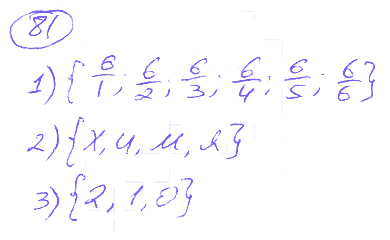 81
1) {6/1; 6/2; 6/3; 6/4; 6/5; 6/6}
2) {х, и, м, я}
3) {2, 1, 0}